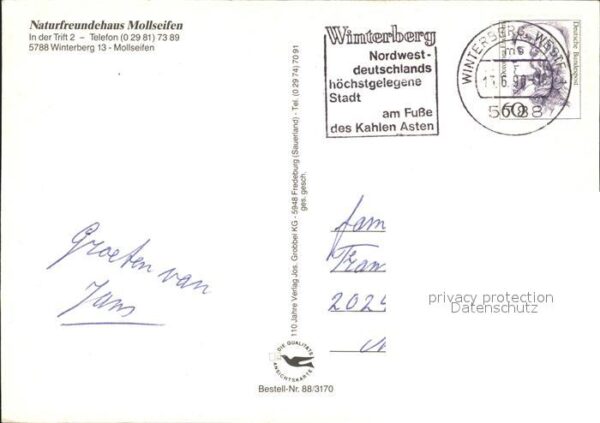 Naturfreundehaus Mollseifen
In der Trift 2 – Telefon (0 29 81) 73 89
5788 Winterberg 13 - Mollseifen
Winterberg
Nordwest-
deutschlands
höchstgelegene
Stadt
am Fuße
des Kahlen Asten
WINTERBERG, WESTF
5788
60
Deutsche Bundespost
110 Jahre Verlag Jos. Grobbel KG - 5948 Fredeburg (Sauerland) - Tel. (0 29 74) 70 91
ges. gesch.
Groeten van
Jans
fam
Fran
202
privacy protection
Datenschutz
DIE QUALITÄTS
ANSICHTSKARTE
Bestell-Nr. 88/3170